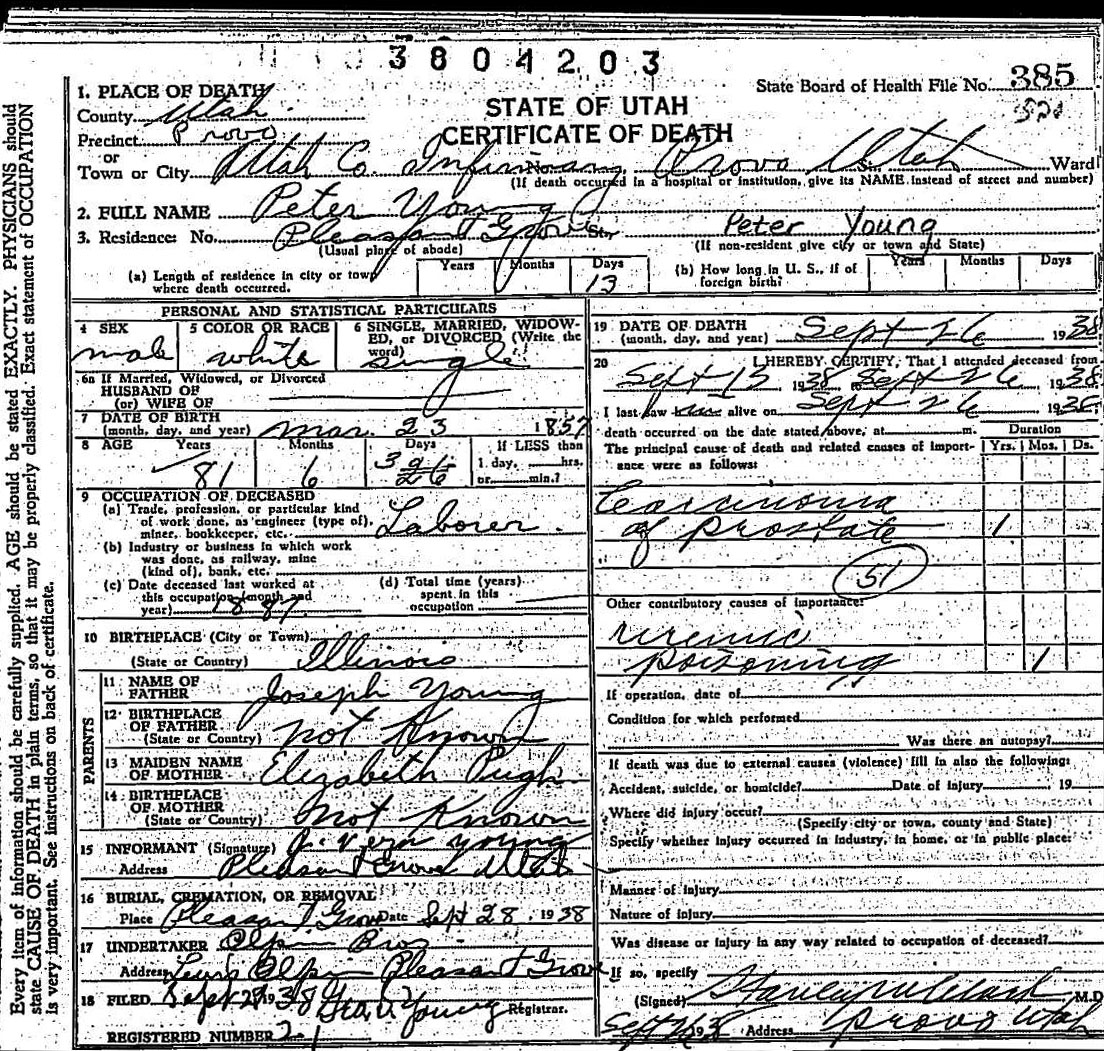 3804203
State Board of Health File No. 385
STATE OF UTAH
CERTIFICATE OF DEATH
1. PLACE OF DEATH
County Utah
Precinct Provo
or
Town or City Utah Co. Infirmary No. Provo Utah St. Ward
(If death occurred in a hospital or institution, give its NAME instead of street and number)
2. FULL NAME Peter Young
3. Residence: No. Pleasant Grove St. Peter Young
(Usual place of abode) (If non-resident give city or town and State)
(a) Length of residence in city or town where death occurred. Years Months Days 13
(b) How long in U. S., if of foreign birth? Years Months Days
PERSONAL AND STATISTICAL PARTICULARS
4 SEX male
5 COLOR OR RACE white
6 SINGLE, MARRIED, WIDOWED, or DIVORCED (Write the word) single
6a If Married, Widowed, or Divorced
HUSBAND OF
(or) WIFE OF
7 DATE OF BIRTH
(month, day, and year) Mar. 23 1857
8 AGE Years 81 Months 6 Days 3 26 If LESS than
1 day, hrs.
or min.?
9 OCCUPATION OF DECEASED
(a) Trade, profession, or particular kind
of work done, as engineer (type of),
miner, bookkeeper, etc. Laborer.
(b) Industry or business in which work
was done, as railway, mine
(kind of), bank, etc.
(c) Date deceased last worked at
this occupation (month and
year) 1887
(d) Total time (years)
spent in this
occupation
10 BIRTHPLACE (City or Town)
(State or Country) Illinois
PARENTS
11 NAME OF
FATHER Joseph Young
12 BIRTHPLACE
OF FATHER
(State or Country) Not Known
13 MAIDEN NAME
OF MOTHER Elizabeth Pugh
14 BIRTHPLACE
OF MOTHER
(State or Country) Not Known
15 INFORMANT (Signature) Vern Young
Address Pleasant Grove Utah
16 BURIAL, CREMATION, OR REMOVAL
Place Pleasant Grove Date Sept 28, 1938
17 UNDERTAKER Olpin Bros
Address Lewis Olpin Pleasant Grove
18 FILED Sept 29 1938 Young Registrar.
REGISTERED NUMBER
19 DATE OF DEATH
(month, day, and year) Sept 26 1938
20 I HEREBY CERTIFY, That I attended deceased from
Sept 1938 to Sept 26, 1938
I last saw him alive on Sept 26 1938
death occurred on the date stated above, at m. Duration
The principal cause of death and related causes of importance were as follows: Yrs. Mos. Ds.
Carcinoma
of prostate 1
51
Other contributory causes of importance:
uremic
poisoning 1
If operation, date of
Condition for which performed
Was there an autopsy?
If death was due to external causes (violence) fill in also the following:
Accident, suicide, or homicide? Date of injury 19
Where did injury occur?
(Specify city or town, county and State)
Specify whether injury occurred in industry, in home, or in public place:
Manner of injury
Nature of injury
Was disease or injury in any way related to occupation of deceased?
If so, specify
(Signed) M.D.
Address Provo Utah
Every item of information should be carefully supplied. AGE should be stated EXACTLY. PHYSICIANS should
state CAUSE OF DEATH in plain terms, so that it may be properly classified. Exact statement of OCCUPATION
is very important. See instructions on back of certificate.